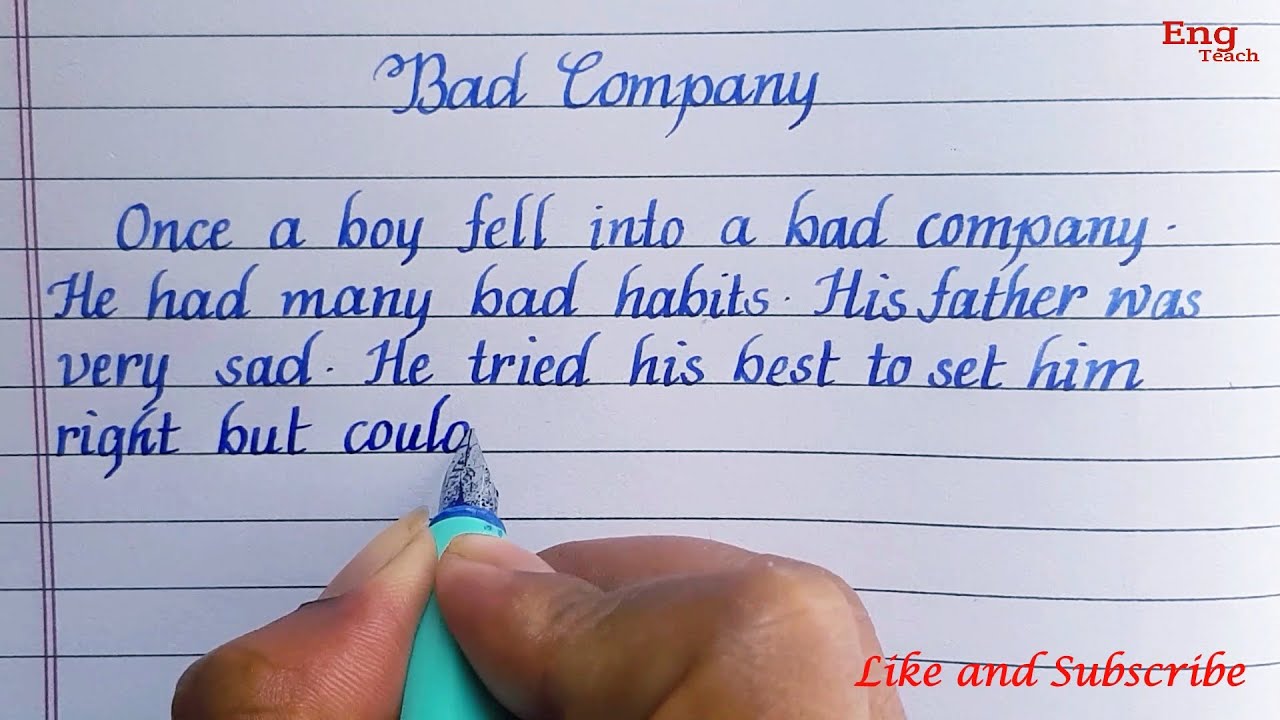 Eng
Teach
Bad Company
Once a boy fell into a bad company.
He had many bad habits. His father was
very sad. He tried his best to set him
right but could
Like and Subscribe